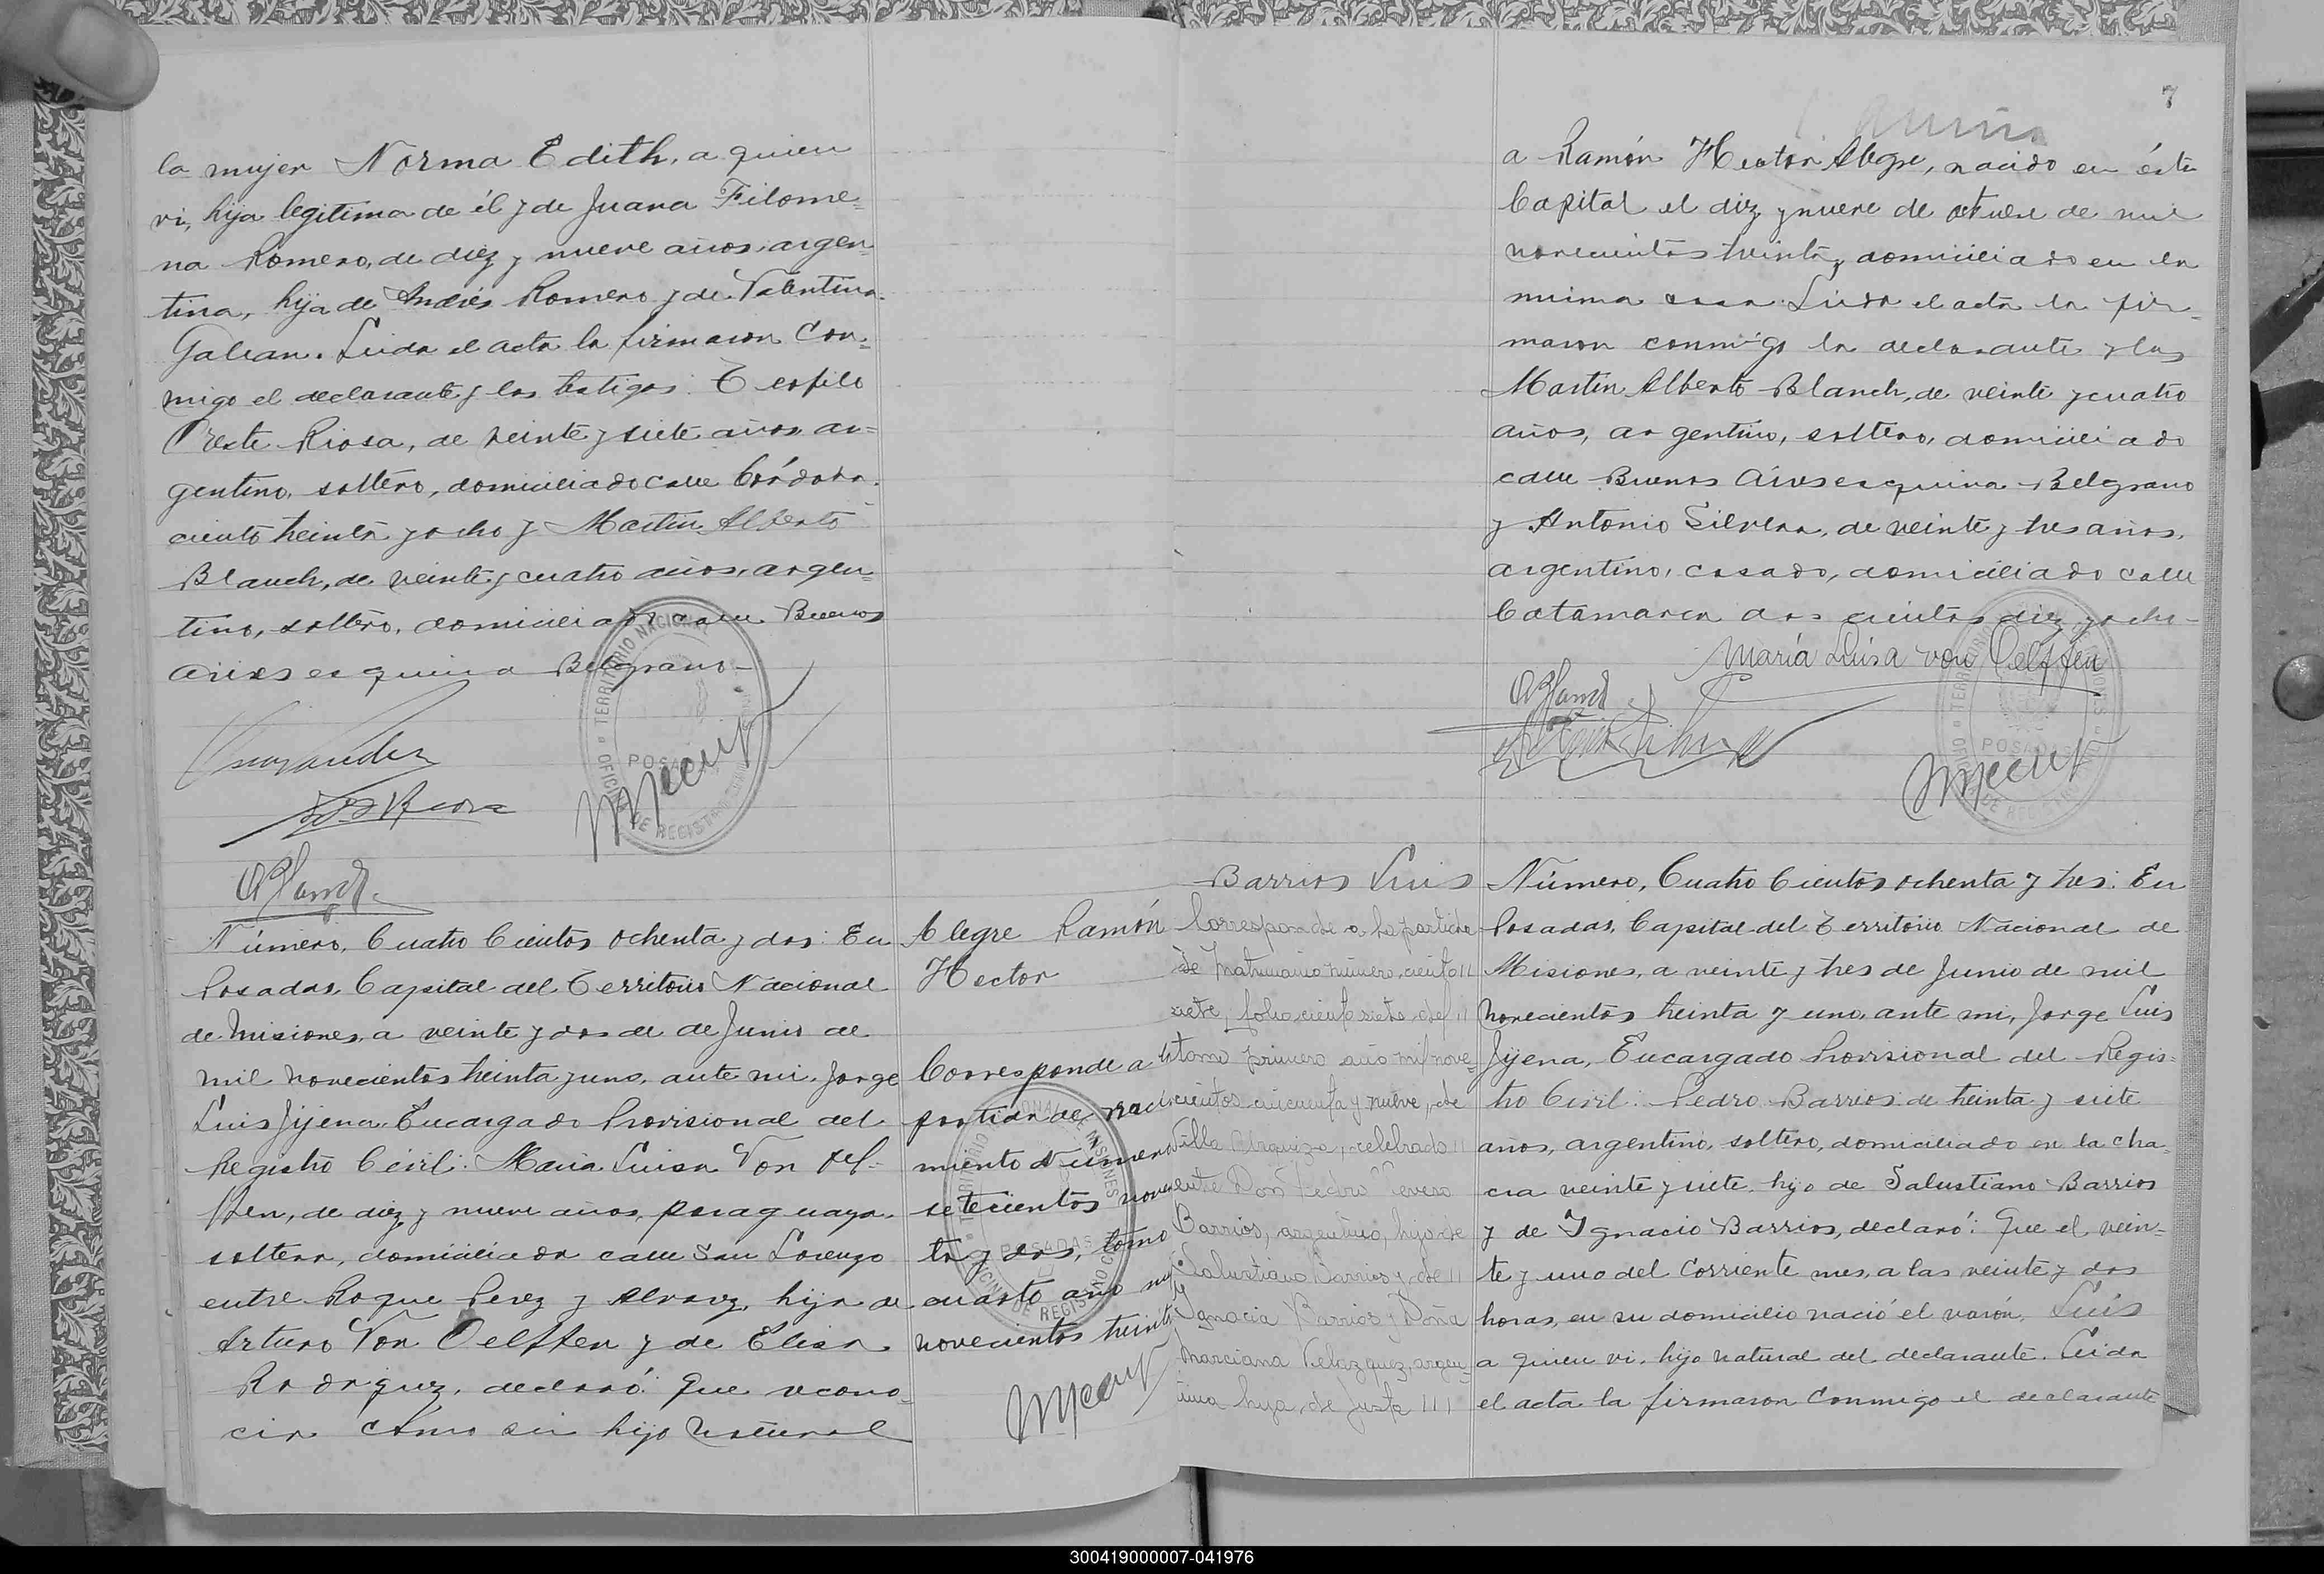 la mujer Norma Edith, a quien
vi, hija legitima de él y de Juana Filome-
na Romero, de diez y nueve años, argen-
tina, hija de Andrés Romero y de Valentina
Galean. Leida el acta la firmaron con-
migo el declarante y los testigos: Teofilo
Oreste Riosa, de veinte y siete años, ar-
gentino, soltero, domiciliado calle Córdoba
ciento treinta y ocho y Martin Alberto
Blanch, de veinte y cuatro años, argen-
tino, soltero, domiciliado calle Buenos
Aires esquina Belgrano-
TERRITORIO NACIONAL
POSADAS
OFICINA DE REGISTRO
Número, Cuatro Cientos ochenta y dos: En
Posadas, Capital del Territorio Nacional
de Misiones, a veinte y dos de de Junio de
mil novecientos treinta y uno, ante mi, Jorge
Luis Jijena, Encargado Provisional del
Registro Civil: Maria Luisa Von Oel-
ffen, de diez y nueve años, paraguaya,
soltera, domiciliada calle San Lorenzo
entre Roque Perez y Alvarez, hija de
Arturo Von Oelffen y de Elisa
Rodriguez, declaró: Que recono-
cia como su hijo natural
Alegre Ramón
Hector
Corresponde a la
partida de naci
miento número
setecientos noven
ta y dos, tomo
cuarto año mil
novecientos treinta
7
a Ramón Hector Alegre, nacido en ésta
Capital el diez y nueve de octubre de mil
novecientos treinta y domiciliado en la
misma casa. Leida el acta la fir-
maron conmigo la declarante y los
Martin Alberto Blanch, de veinte y cuatro
años, argentino, soltero, domiciliado
calle Buenos Aires esquina Belgrano
y Antonio Silvera, de veinte y tres años,
argentino, casado, domiciliado calle
Catamarca dos cientos diez y ocho-
María Luisa von Oelffen
POSADAS
Barrios Luis
Corresponde a la partida
de Matrimonio número ciento
siete, folio ciento siete del
tomo primero año mil nove-
cientos cincuenta y nueve, de
Villa Urquiza, celebrado
entre Don Pedro Severo
Barrios, argentino, hijo de
Salustiano Barrios y de
Ignacia Barrios y Doña
Marciana Velazquez, argen
tina hija de Justa
Número, Cuatro Cientos ochenta y tres: En
Posadas, Capital del Territorio Nacional de
Misiones, a veinte y tres de Junio de mil
novecientos treinta y uno, ante mi, Jorge Luis
Jijena, Encargado Provisional del Regis-
tro Civil: Pedro Barrios de treinta y siete
años, argentino, soltero, domiciliado en la cha-
cra veinte y siete, hijo de Salustiano Barrios
y de Ignacio Barrios, declaró: Que el vein-
te y uno del corriente mes, a las veinte y dos
horas, en su domicilio nació el varón, Luis
a quien vi, hijo natural del declarante. Leida
el acta la firmaron conmigo el declarante
300419000007-041976